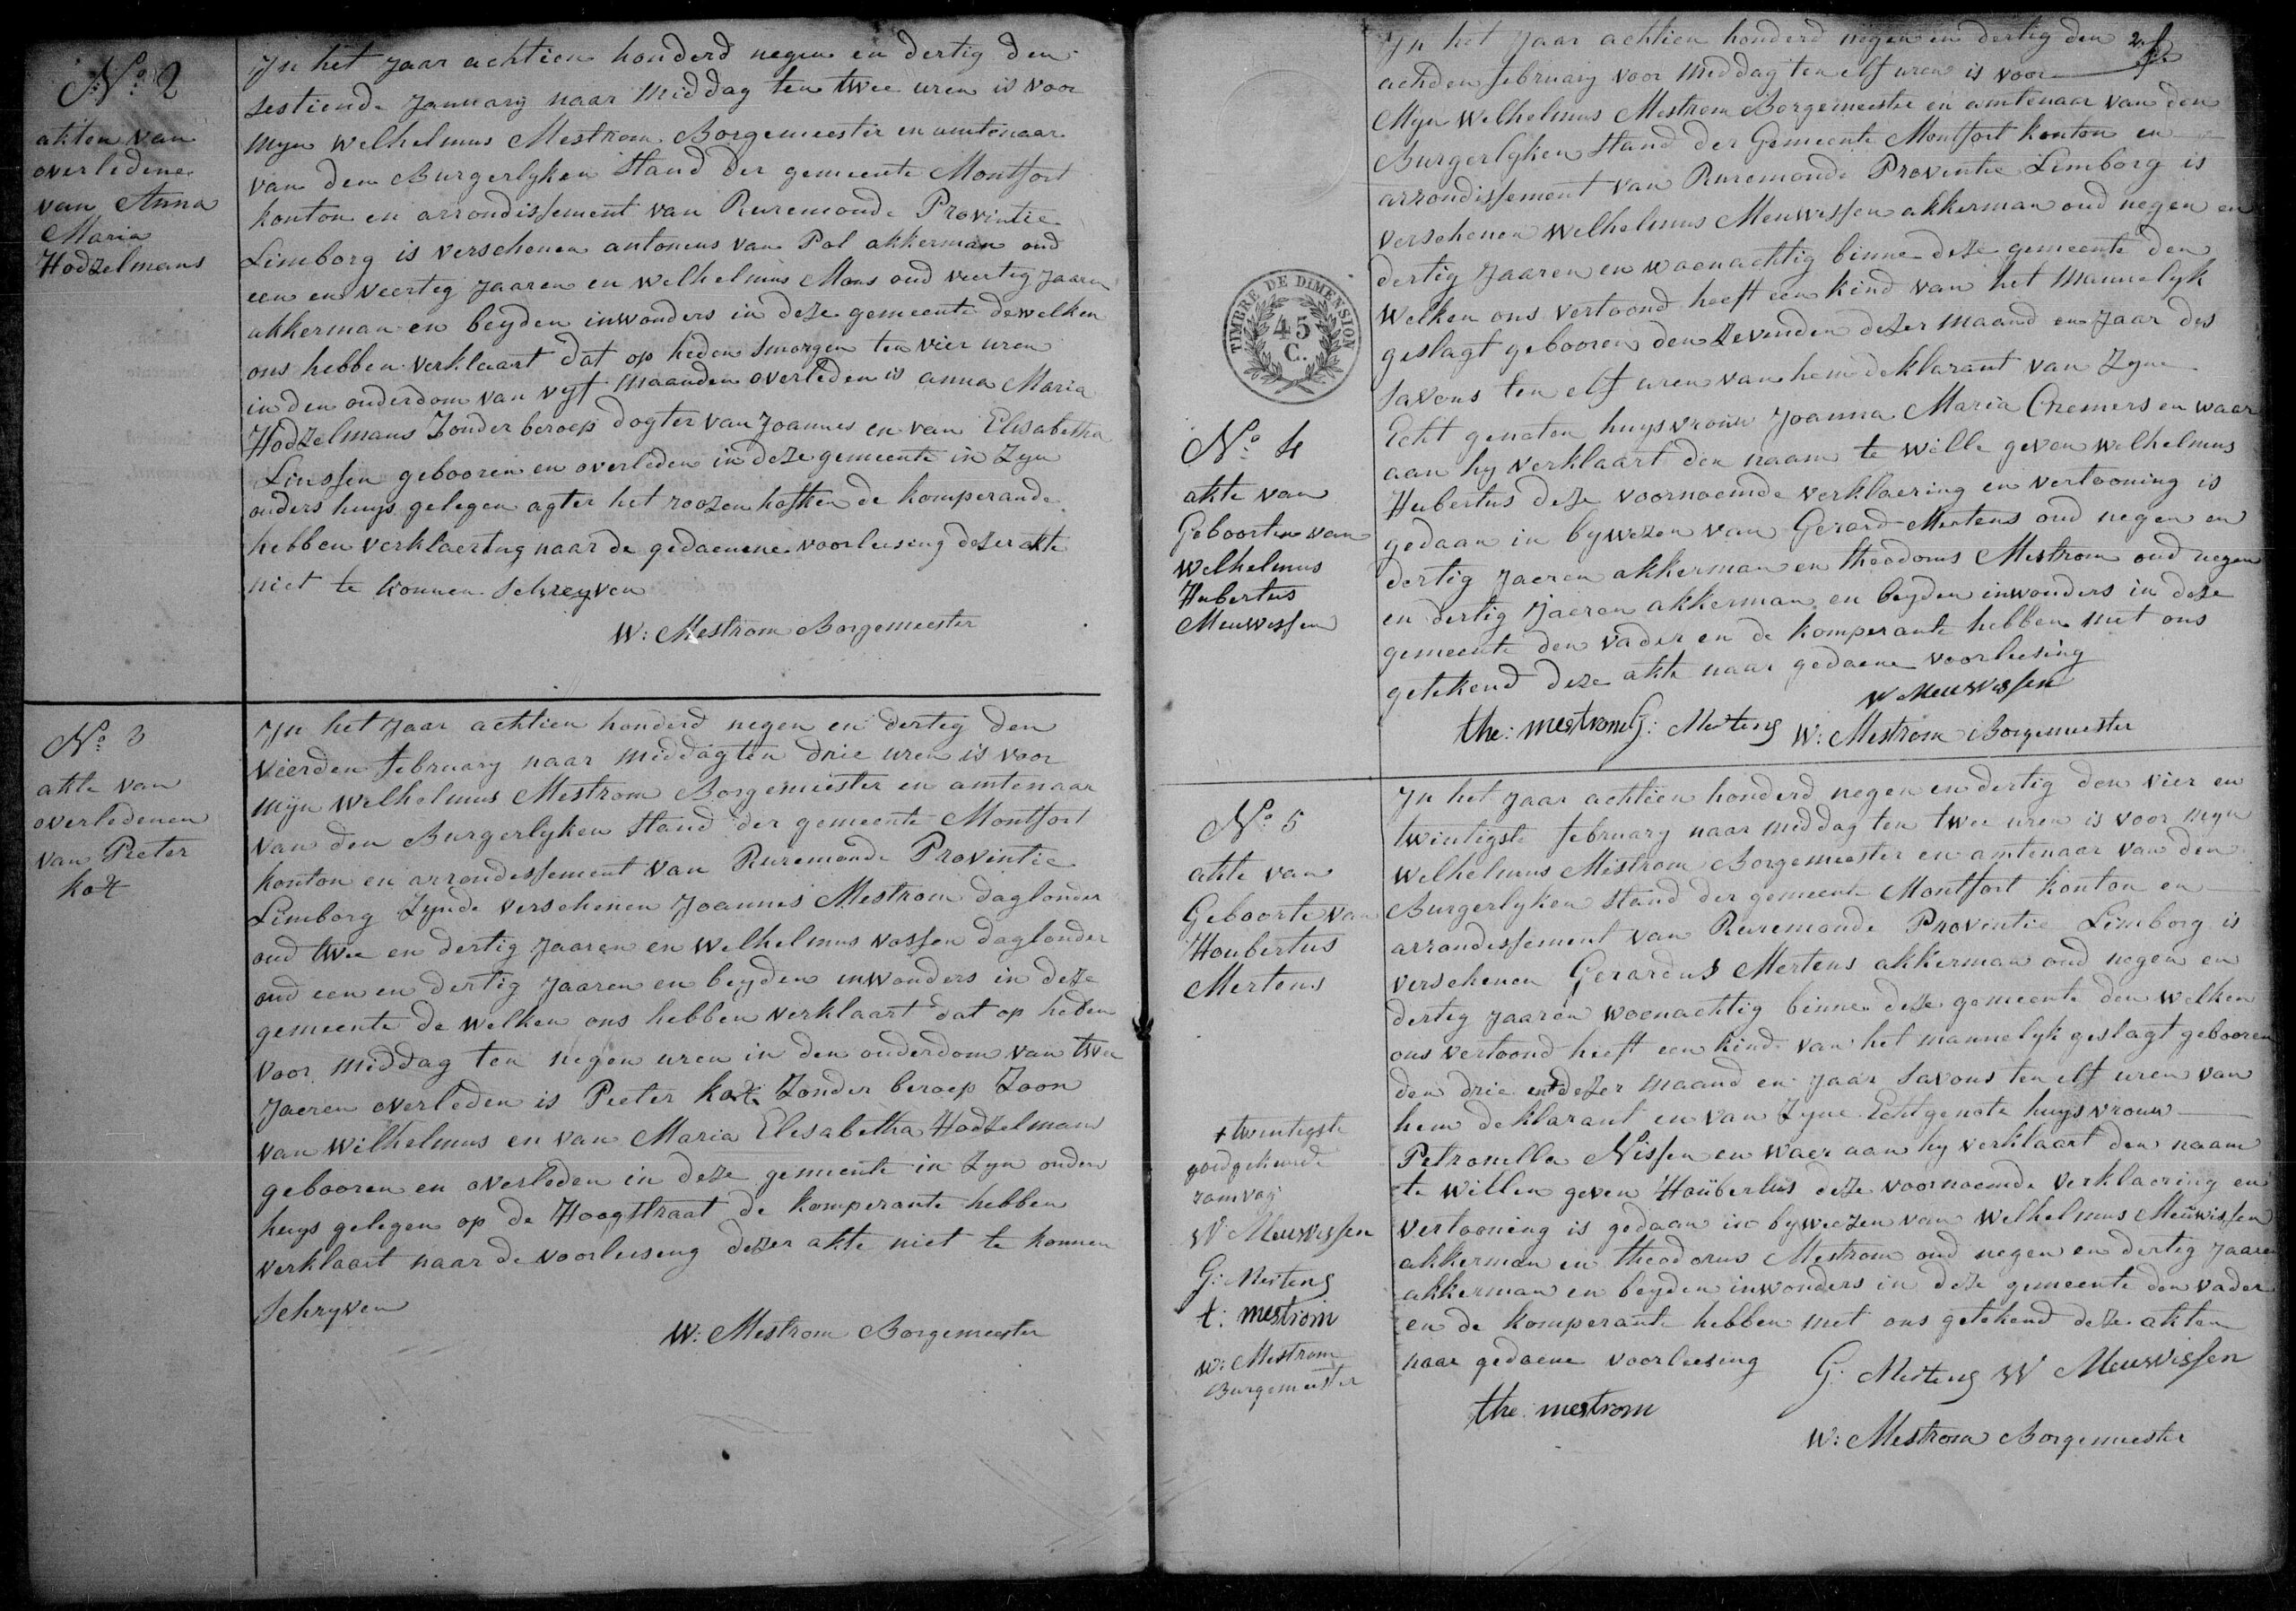 No 2
akten van
overledene
van Anna
Maria
Hodzelmans
In het Jaar achtien honderd negen en dertig den
sestiende January naar middag ten twee uren is voor
myn Welhelmus Mestrom Borgemeester en amtenaar
van den Burgerlyken Stand der gemeente Montfort
konton en arrondissement van Ruremonde Provintie
Limborg is verschenen antonius van Pol akkerman oud
een en veertig Jaaren en Welhelmus Mans oud veertig Jaaren
akkerman en beyden inwonders in deze gemeente dewelken
ons hebben verklaart dat op heden smorgen ten vier uren
in den ouderdom van vyf maanden overleden is anna Maria
Hodzelmans Zonder beroep dogter van Joannes en van Elisabetha
Linssen gebooren en overleden in deze gemeente in Zyn
ouders huys gelegen agter het roozen hofken de komperande
hebben verklaering naar de gedaenene voorleesing dezer akte
niet te konnen Schreyven
W: Mestrom Borgemeester
No 3
akte van
overledenen
van Peeter
kox
In het Jaar achtien honderd negen en dertig den
vierden february naar middag ten drie uren is voor
mijn Welhelmus Mestrom Borgemeester en amtenaar
van den Burgerlyken Stand der gemeente Montfort
konton en arrondessement van Ruremonde Provintie
Limborg Zynde verschenen Joannes Mestrom daglonder
oud twee en dertig Jaaren en Welhelmus vossen daglonder
oud een en dertig Jaaren en beyden inwonders in deze
gemeente de welken ons hebben verklaart dat op heden
voor middag ten negen uren in den ouderdom van twee
Jaeren overleden is Peeter kox Zonder beroep Zoon
van Wilhelmus en van Maria Elesabetha Hodzelmans
gebooren en overleden in deze gemeente in Zyn ouders
huys gelegen op de Hoogstraat de komperante hebben
verklaart naar de voorleeseng dezer akte niet te konnen
Schryven
W: Mestrom Borgemeester
2
In het Jaar achtien honderd negen en dertig den
achden february voor middag ten elf uren is voor
Myn Welhelmus Mestrom Borgemeester en amtenaar van den
Burgerlyken Stand der Gemeente Montfort konton en
arrondissement van Ruremonde Provintie Limborg is
verschenen Welhelmus Meuwissen akkerman oud negen en
dertig Jaaren en woenachtig binne deze gemeente den
Welken ons vertoond heeft een kind van het mannelyk
geslagt gebooren den Zevenden dezer maand en Jaar des
savons ten elf uren van hem deklarant van Zyne
Echt genoten huysvrouw Joanna Maria Cremers en waar
aan hy verklaart den naam te wille geven Welhelmus
Hubertus deze voornoemde verklaering en vertooning is
gedaan in bywezen van Gerard Mertens oud negen en
dertig Jaeren akkerman en theodorus Mestrom oud negen
en dertig Jaeren akkerman en beyden inwonders in deze
gemeente den vader en de komperante hebben met ons
getekend deze akte naar gedaene voorleesing
W Meuwissen
the: mestrom G: Mertens W: Mestrom Borgemeester
TIMBRE DE DIMENSION
45
C.
No 4
akte van
Geboorten van
Welhelmus
Hubertus
Meuwessen
No 5
akte van
Geboorte van
Houbertus
Mertens
+ twentigste
goedgekeurde
W Meuwissen
G: Mertens
t: mestrom
W: Mestrom
Burgemeester
In het Jaar achtien honderd negen en dertig den vier en
twintigste february naar middag ten twee uren is voor myn
Welhelmus Mestrom Borgemeester en amtenaar van den
Burgerlyken Stand der gemeente Montfort konton en
arrondessement van Ruremonde Provintie Limborg is
verschenen Gerardus Mertens akkerman oud negen en
dertig Jaaren woenachtig binne deze gemeente den welken
ons vertoond heeft een kind van het mannelyk geslagt gebooren
den drie en + dezer maand en Jaar savons ten elf uren van
hem deklarant en van Zyne Echtgenote huysvrouw
Petronella Nissen en waer aan hy verklaart den naam
te willen geven Houbertus deze voornoemde verklaering en
vertooning is gedaan in byweezen van Welhelmus Meuwissen
akkerman en theodorus Mestrom oud negen en dertig Jaaren
akkerman en beyden inwonders in deze gemeente den vader
en de komperante hebben met ons getekend deze akten
naar gedaene voorleesing
G: Mertens W Meuwissen
the: mestrom
W: Mestrom Borgemeester